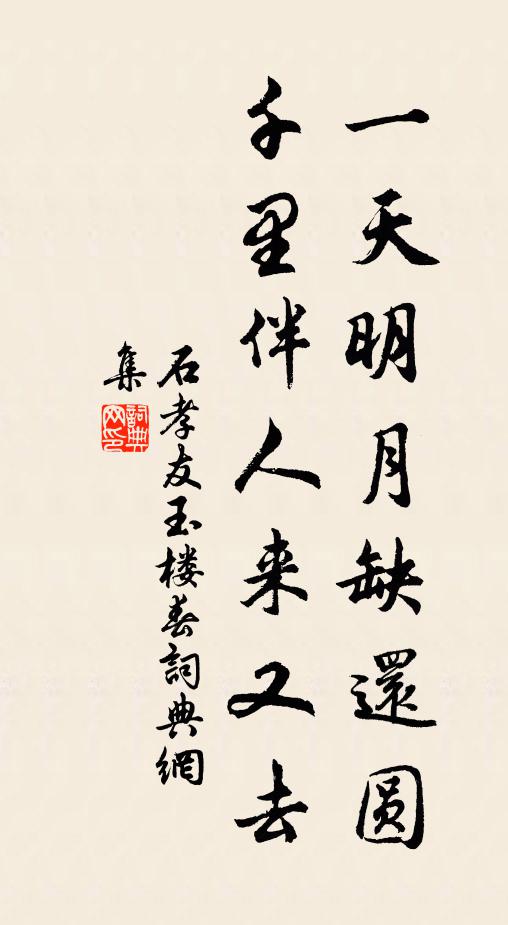 一天明月缺還圆
千里伴人来又去
石孝友玉楼春詞典網
集
詞典网印